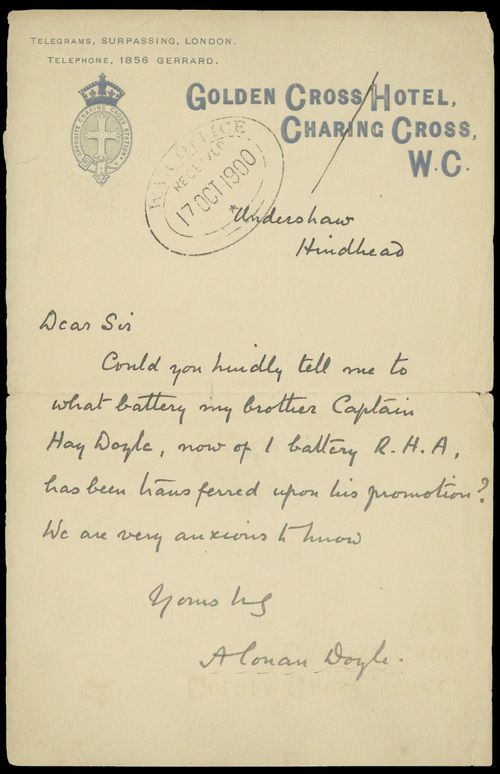 TELEGRAMS, SURPASSING, LONDON.
TELEPHONE, 1856 GERRARD.
OPPOSITE CHARING CROSS STATION
GOLDEN CROSS HOTEL,
CHARING CROSS,
W.C.
WAR OFFICE
RECEIVED
17 OCT 1900
Undershaw
Hindhead
Dear Sir
Could you kindly tell me to
what battery my brother Captain
Hay Doyle, now of I battery R.H.A,
has been transferred upon his promotion?
We are very anxious to know
Yours
A Conan Doyle.